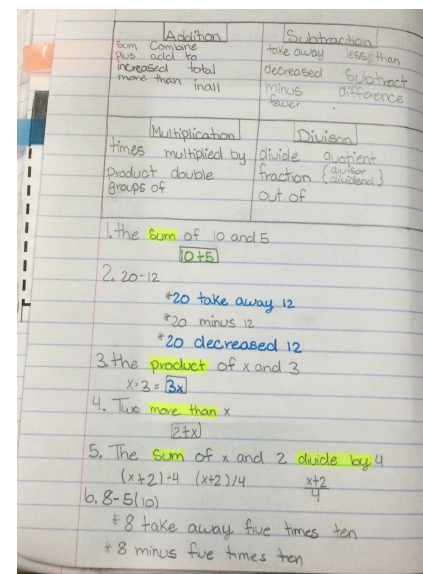 Addition
Sum Combine
plus add to
increased total
more than inall
Subtraction
take away less than
decreased Subtract
minus difference
fewer
Multiplication
times multiplied by
Product double
groups of
Divison
divide quotient
fraction (divisor
dividend)
out of
1. the Sum of 10 and 5
10+5
2. 20-12
*20 take away 12
*20 minus 12
*20 decreased 12
3. the product of x and 3
x·3 = 3x
4. Two more than x
2+x
5. The Sum of x and 2 divide by 4
(x+2)÷4 (x+2)/4 x+2
4
6. 8-5(10)
*8 take away five times ten
*8 minus five times ten